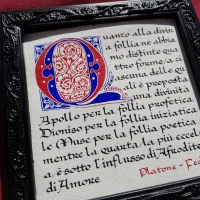 Quanto alla divin
a follia ne abbia
mo distinte qua
ttro forme, a ci
ascuna delle qu
ali è preposta
una divinità
Apollo per la follia profetica
Dioniso per la follia iniziatica
le Muse per la follia poetica
mentre la quarta, la più eccel
sa, è sotto l'influsso di Afrodite
e di Amore
Platone - Fed